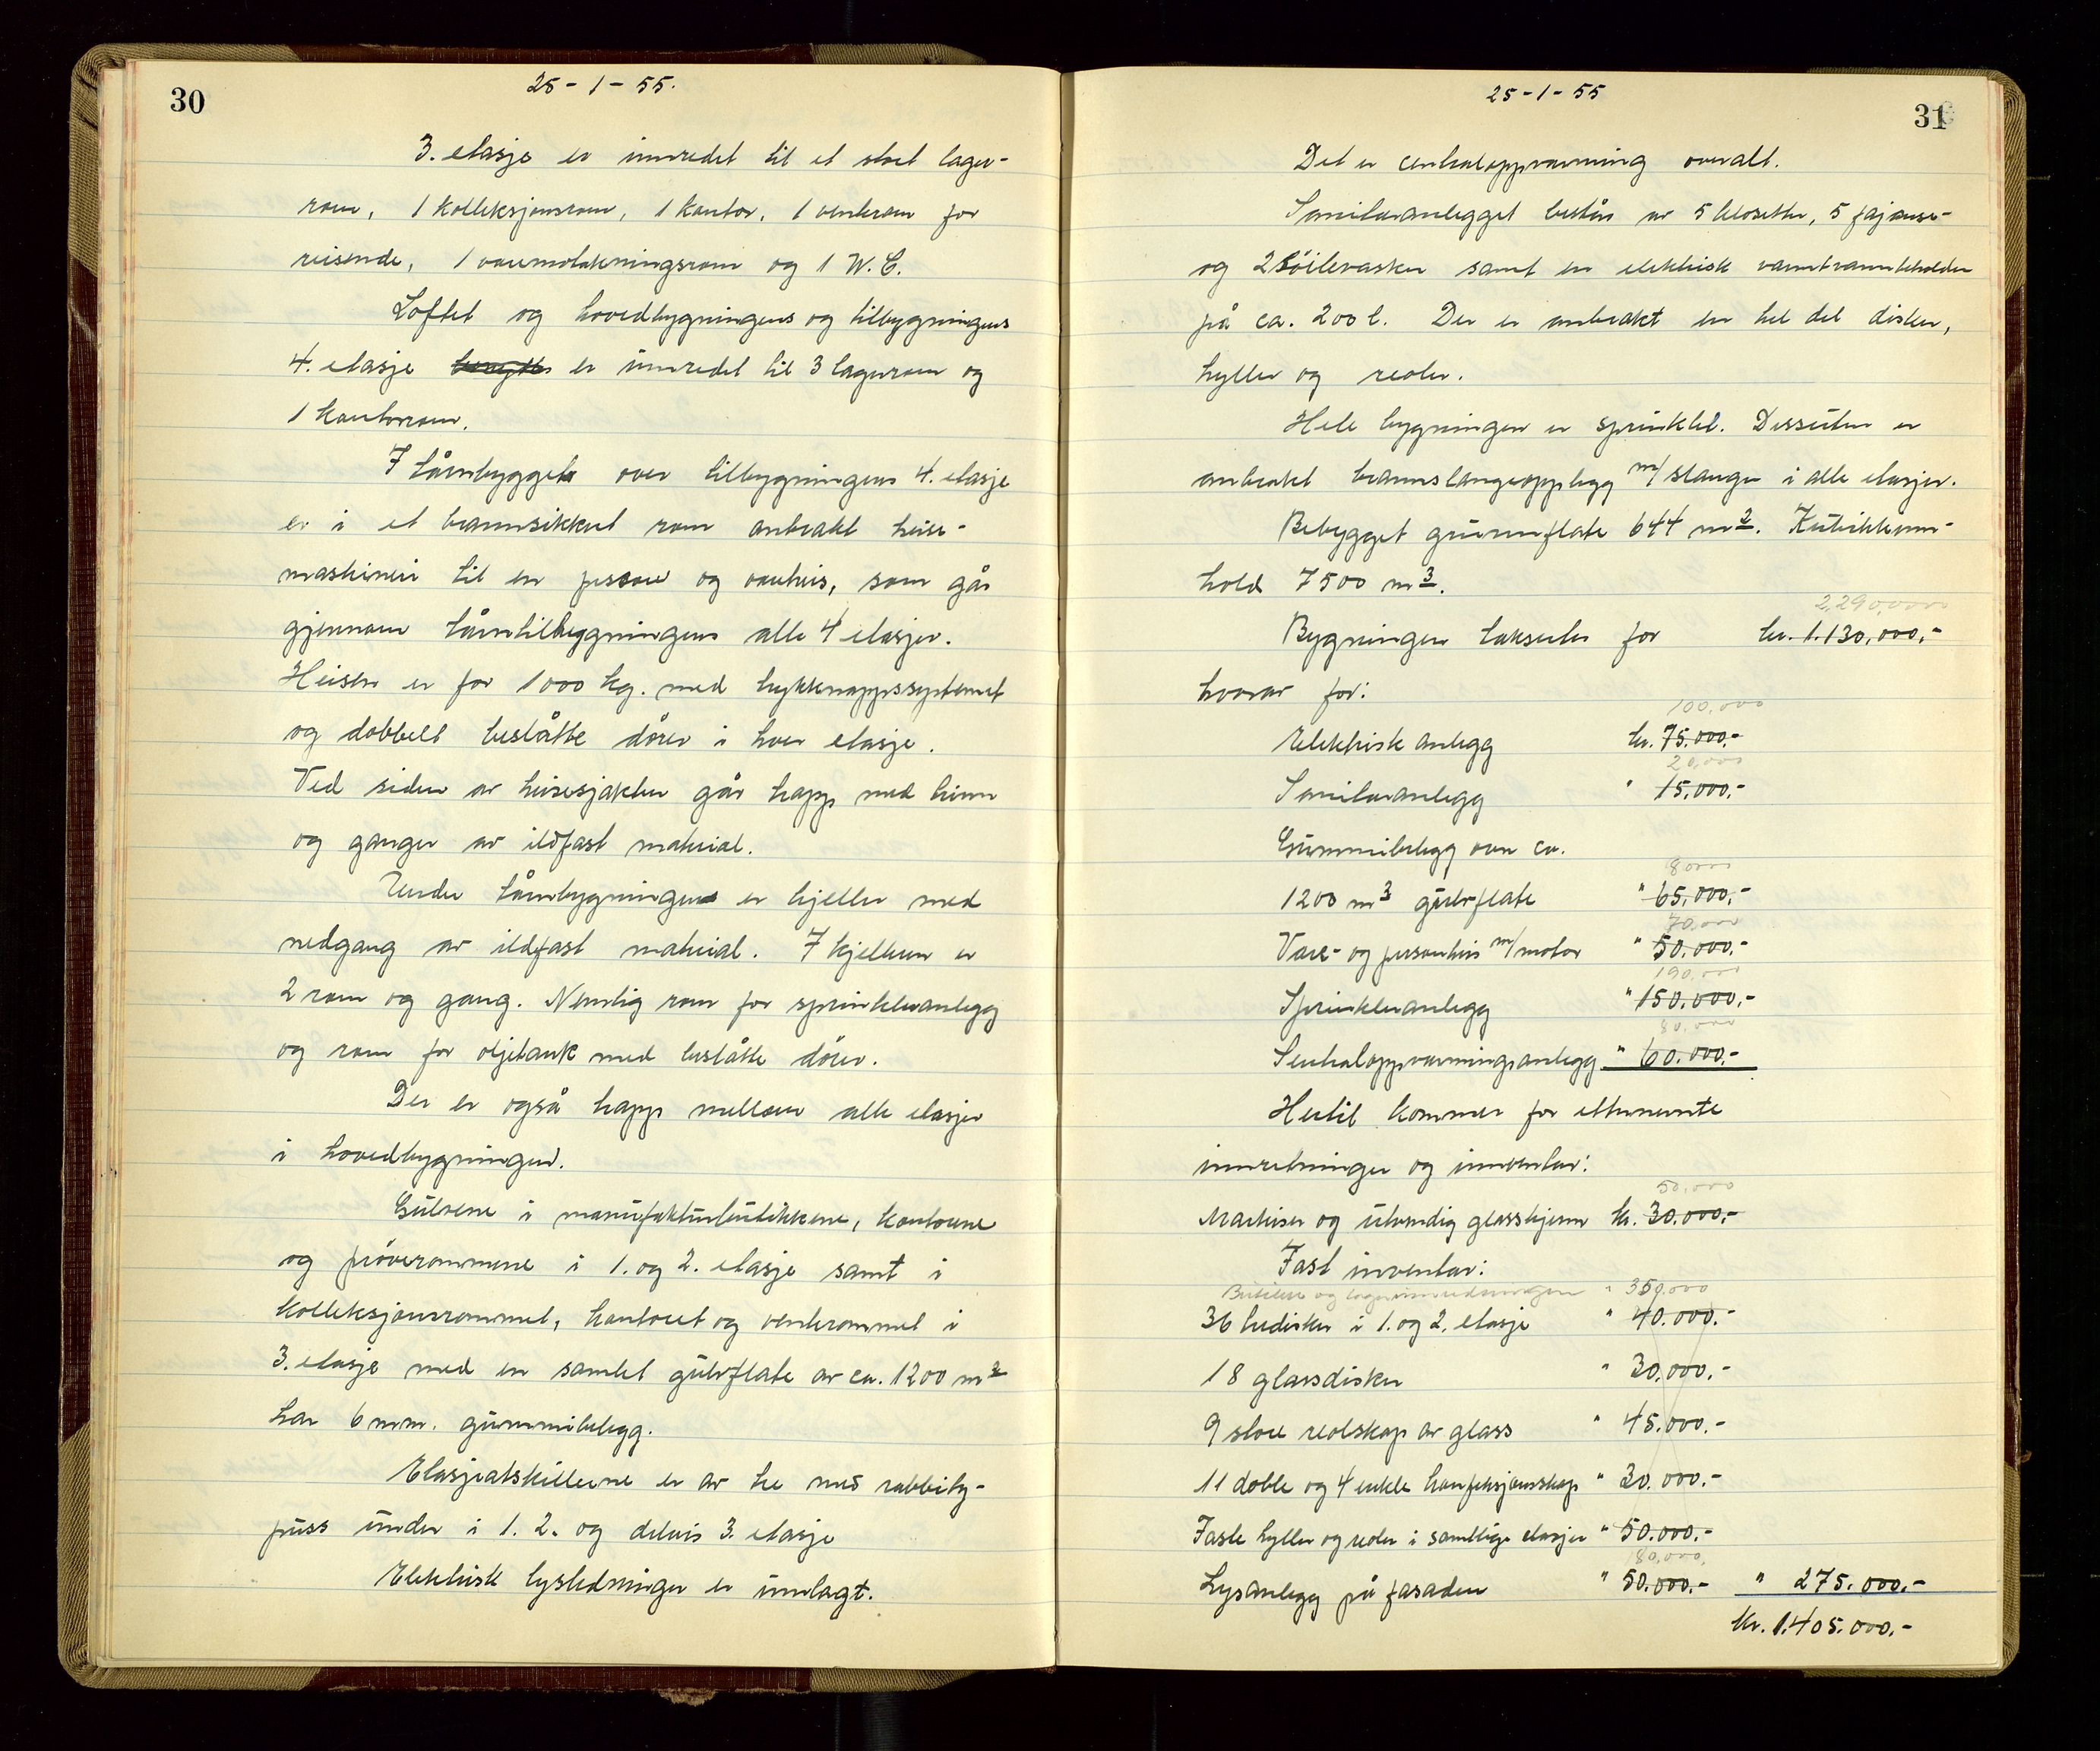 30
25-1-55.
3. etasje er innredet til et stort lager-
rom, 1 kolleksjonsrom, 1 kontor, 1 venterom for
reisende, 1 varemottakningsrom og 1 W.C.
Loftet og hovedbygningens og tilbygningens
4. etasje benyttes er innredet til 3 lagerrom og
1 kontorrom.
I tårnbygget over tilbygningens 4. etasje
er i et brannsikkert rom anbrakt heise-
maskineri til en person og vareheis, som går
gjennom tårntilbygningens alle 4 etasjer.
Heisen er for 1000 kg. med trykknappssystemet
og dobbelt beslåtte dører i hver etasje.
Ved siden av heisesjakten går trapp med trinn
og ganger av ildfast material.
Under tårnbygningen er kjeller med
nedgang av ildfast material. I kjelleren er
2 rom og gang. Nemlig rom for sprinkleranlegg
og rom for oljetank med beslåtte dører.
Der er også trapp mellom alle etasjer
i hovedbygningen.
Gulvene i manufakturbutikkene, kontorene
og prøverommene i 1. og 2. etasje samt i
kolleksjonsrommet, kontoret og venterommet i
3. etasje med en samlet gulvflate av ca. 1200 m2
har 6 mm. gummibelegg.
Etasjeatskillerne er av tre med rabbitz-
puss under i 1. 2. og delvis 3. etasje
Elektrisk lysledninger er innlagt.
31
25-1-55
Det er centraloppvarming overalt.
Sanitæranlegget består av 5 klosetter, 5 fajanse-
og 2 søilevasker samt en elektrisk varmtvannbeholder
på ca. 200 l. Der er anbrakt en hel del disker,
hyller og reoler.
Hele bygningen er sprinklet. Dessuten er
anbrakt brannslangeopplegg m/ slanger i alle etasjer.
Bebygget grunnflate 644 m2. Kubikkinn-
hold 7500 m3.
2.290.000
Bygningen takseres for kr. 1.130.000.-
hvorav for:
100.000
Elektrisk anlegg kr. 75.000.-
20.000
Sanitæranlegg " 15.000.-
Gummibelegg over ca.
8000
1200 m3 gulvflate " 65.000.-
70.000
Vare- og personheis m/motor " 50.000.-
190.000
Sprinkleranlegg " 150.000.-
80.000
Sentraloppvarmingsanlegg " 60.000.-
Hertil kommer for etternevnte
innretninger og inventar:
50.000
Markiser og utvendig glasskjerm kr. 30.000.-
Fast inventar:
Butikk og lagerinnredningen " 350.000
36 tredisker i 1. og 2. etasje " 40.000.-
18 glassdisker " 30.000.-
9 store reolskap av glass " 45.000.-
11 doble og 4 enkle konfeksjonsskap " 30.000.-
Faste hyller og reoler i samtlige etasjer " 50.000.-
180.000,
Lysanlegg på fasaden " 50.000.- " 275.000.-
kr. 1.405.000.-